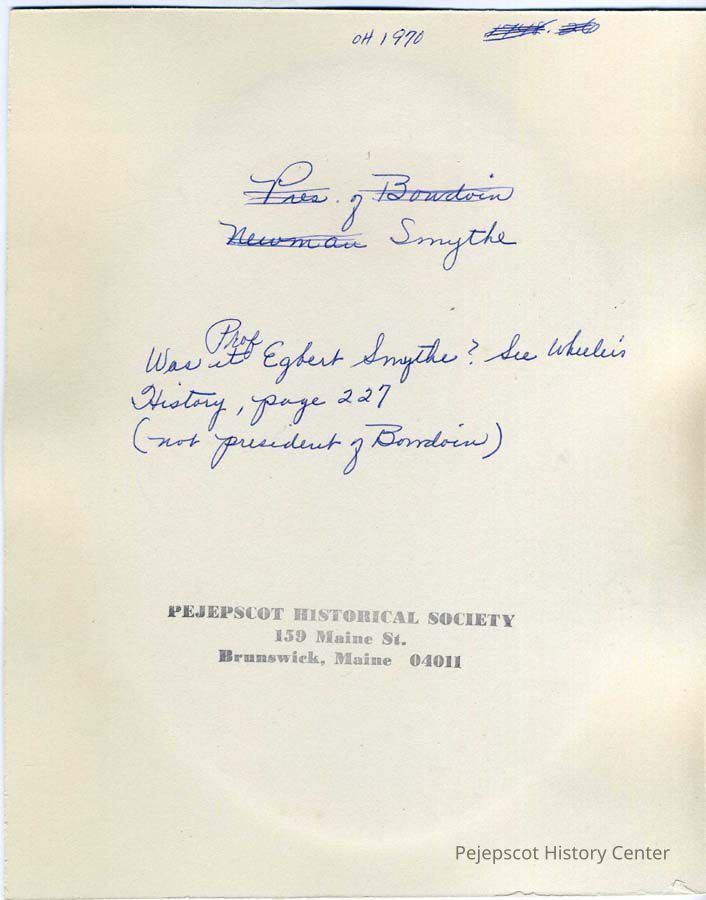 OH 1970 1748.26
Pres. of Bowdoin
Newman Smythe
Prof
Was it Egbert Smythe? See Wheeler's
History, page 227
(not president of Bowdoin)
PEJEPSCOT HISTORICAL SOCIETY
159 Maine St.
Brunswick, Maine 04011
Pejepscot History Center